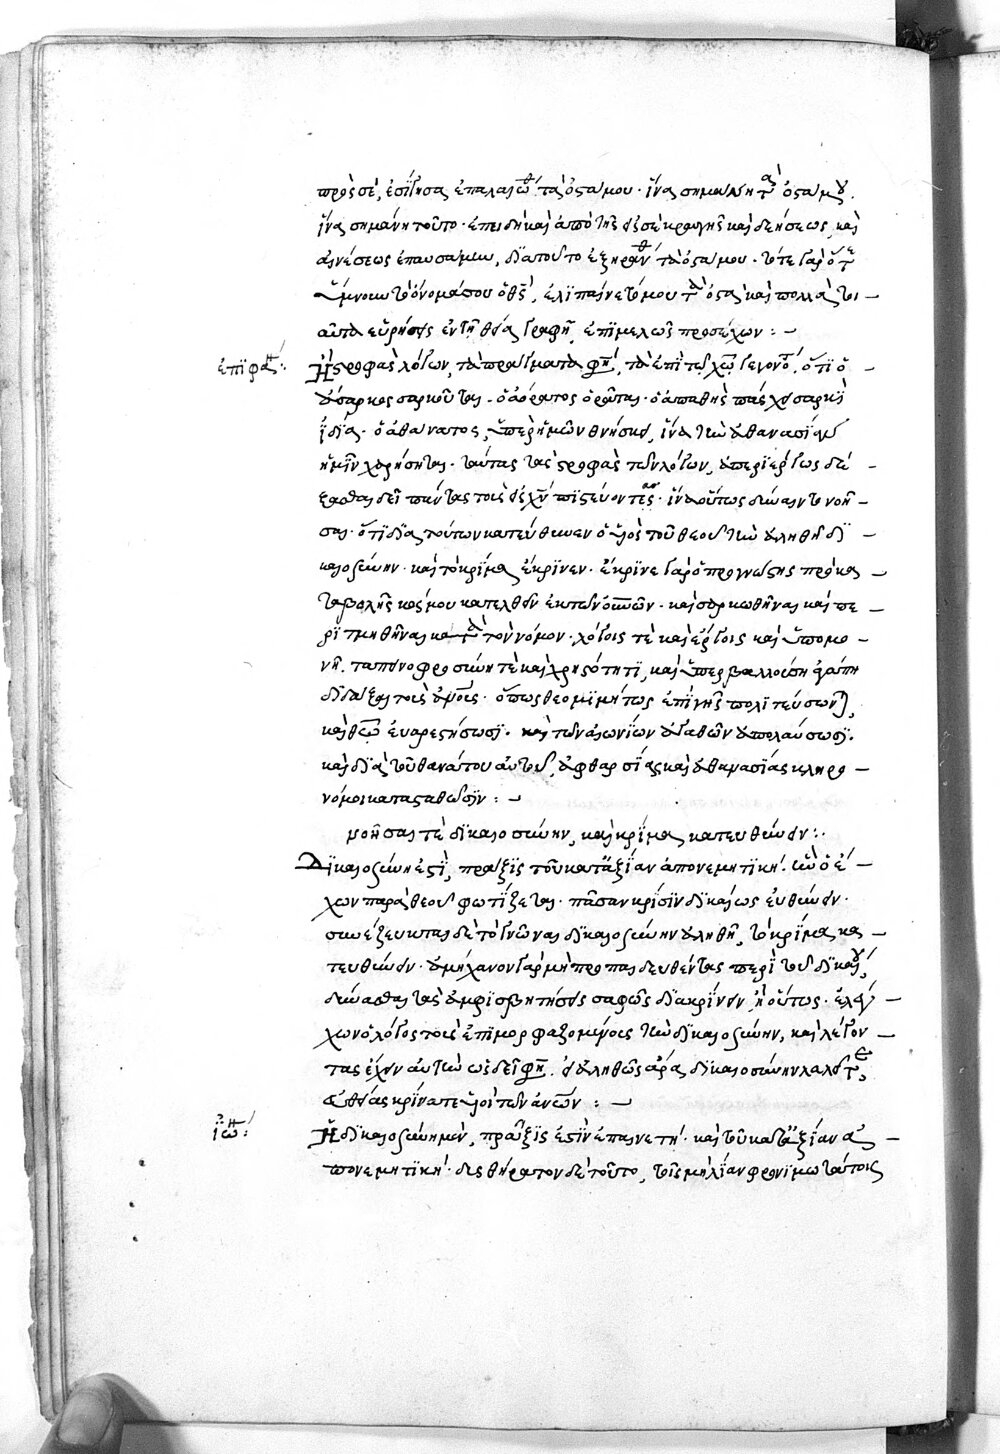 πρὸς σέ, ἐσίγησα ἐπαλαιώθ τὰ ὀστᾶ μου· ἵνα σημαίνη τὰ ὀστᾶ μου.
ἵνα σημάνη τοῦτο· ἐπειδὴ καὶ ἀπὸ τῆς εἰς σὲ κραυγῆς καὶ δεήσεως, καὶ
αἰνέσεως ἐπαυσάμην, διὰ τοῦτο ἐξηράνθ τὰ ὀστᾶ μου· τότε γὰρ ὅτε
ὕμνουν τὸ ὄνομά σου ὁ θς, ἐλιπαίνετό μου τὰ ὀστᾶ· καὶ πολλὰ τοι
αῦτα εὑρήσεις ἐν τῆ θεία γραφῆ, ἐπιμελῶς προσέχων: –
ἐπιφα:
Ἢ στροφὰς λόγων, τὰ πράγματά φη, τὰ ἐπὶ τῶ χω γεγονότ, ὅτι ὁ
ἄσαρκος σαρκοῦται· ὁ ἀόρατος ὁρᾶται· ὁ ἀπαθὴς πάσχει σαρκὶ
ἰδία· ὁ ἀθάνατος, ὑπὲρ ἡμῶν θνήσκει, ἵνα τὴν ἀθανασίαν
ἡμῖν χαρήσηται· ταύτας τὰς στροφὰς τῶν λόγων, ἀπεριέργως δέ
ξασθαι δεῖ πάντας τοὺς εἰς χν πιστεύοντας· ἵνα οὕτως δύναιντο νοῆ
σαι· ὅτι διὰ τούτων κατεύθυνεν ὁ υἱὸς τοῦ θεοῦ τὴν ἀληθῆ δι
καιοσύνην· καὶ τὸ κρίμα ἔκρινεν· ἔκρινε γὰρ ὁ προγνώστης πρὸ κα
ταβολῆς κόσμου κατελθεῖν ἐκ τῶν οὐνῶν· καὶ σαρκωθῆναι καὶ πε
ριτμηθῆναι κατὰ τὸν νόμον· λόγοις τὲ καὶ ἔργοις καὶ ὑπομο
νῆ. ταπεινοφροσύνη τὲ καὶ χρηστότητι, καὶ ὑπερβαλλούση ἀγάπη
διδάξαι τοὺς ἀνους· ὅπως θεομιμήτως ἐπὶ γῆς πολιτεύσωνται,
καὶ θεῶ εὐαρεστήσωσι· καὶ τῶν αἰωνίων ἀγαθῶν ἀπολαύσωσι·
καὶ διὰ τοῦ θανάτου αὐτοῦ, ἀφθαρσίας καὶ ἀθανασίας κληρο
νόμοι κατασταθῶσιν: –
νοῆσαι τὲ δικαιοσύνην, καὶ κρίμα κατευθύνειν:·
Δικαιοσύνη ἐστὶ, πρᾶξις τοῦ κατ' ἀξίαν ἀπονεμητική. ἣν ὁ ἔ
χων παρὰ θεοῦ φωτίζεται· πᾶσαν κρίσιν δικαίως εὐθύνειν·
συνέζευκται δὲ τὸ γνῶναι δικαιοσύνην ἀληθῆ, τὸ κρίμα κα
τευθύνειν· ἀμήχανον γὰρ μὴ προπαιδευθέντας περὶ τοῦ δικαίου,
δύνασθαι τὰς ἀμφισβητήσεις σαφῶς διακρίνειν, ἢ οὕτως· ἐλέγ
χων ὁ λόγος τοὺς ἐπιμορφαζομένους τὴν δικαιοσύνην, καὶ λέγον
τας ἔχειν αὐτὴν ὡς δεῖ φη. εἰ ἀληθῶς ἄρα δικαιοσύνην λαλεῖτε,
εὐθείας κρίνατε υἱοὶ τῶν ἀνων: –
ἰω:
Ἢ δικαιοσύνη μὲν, πρᾶξις ἐστὶν ἐπαινετή· καὶ τοῦ κατ' ἀξίαν ἀ
πονεμητική· δυσθήρατον δὲ τοῦτο, τοῖς μὴ λίαν φρονιμωτάτοις